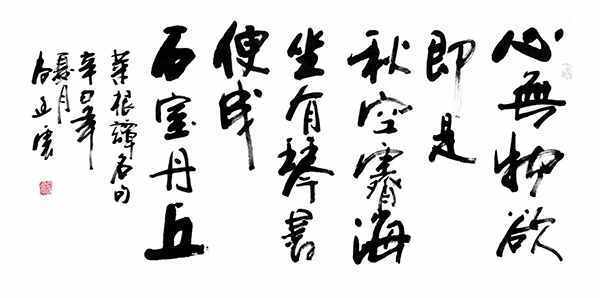 心無物欲
即是
秋空霽海
坐有琴書
便成
石室丹丘
菜根譚名句
辛巳年
夏月
雲